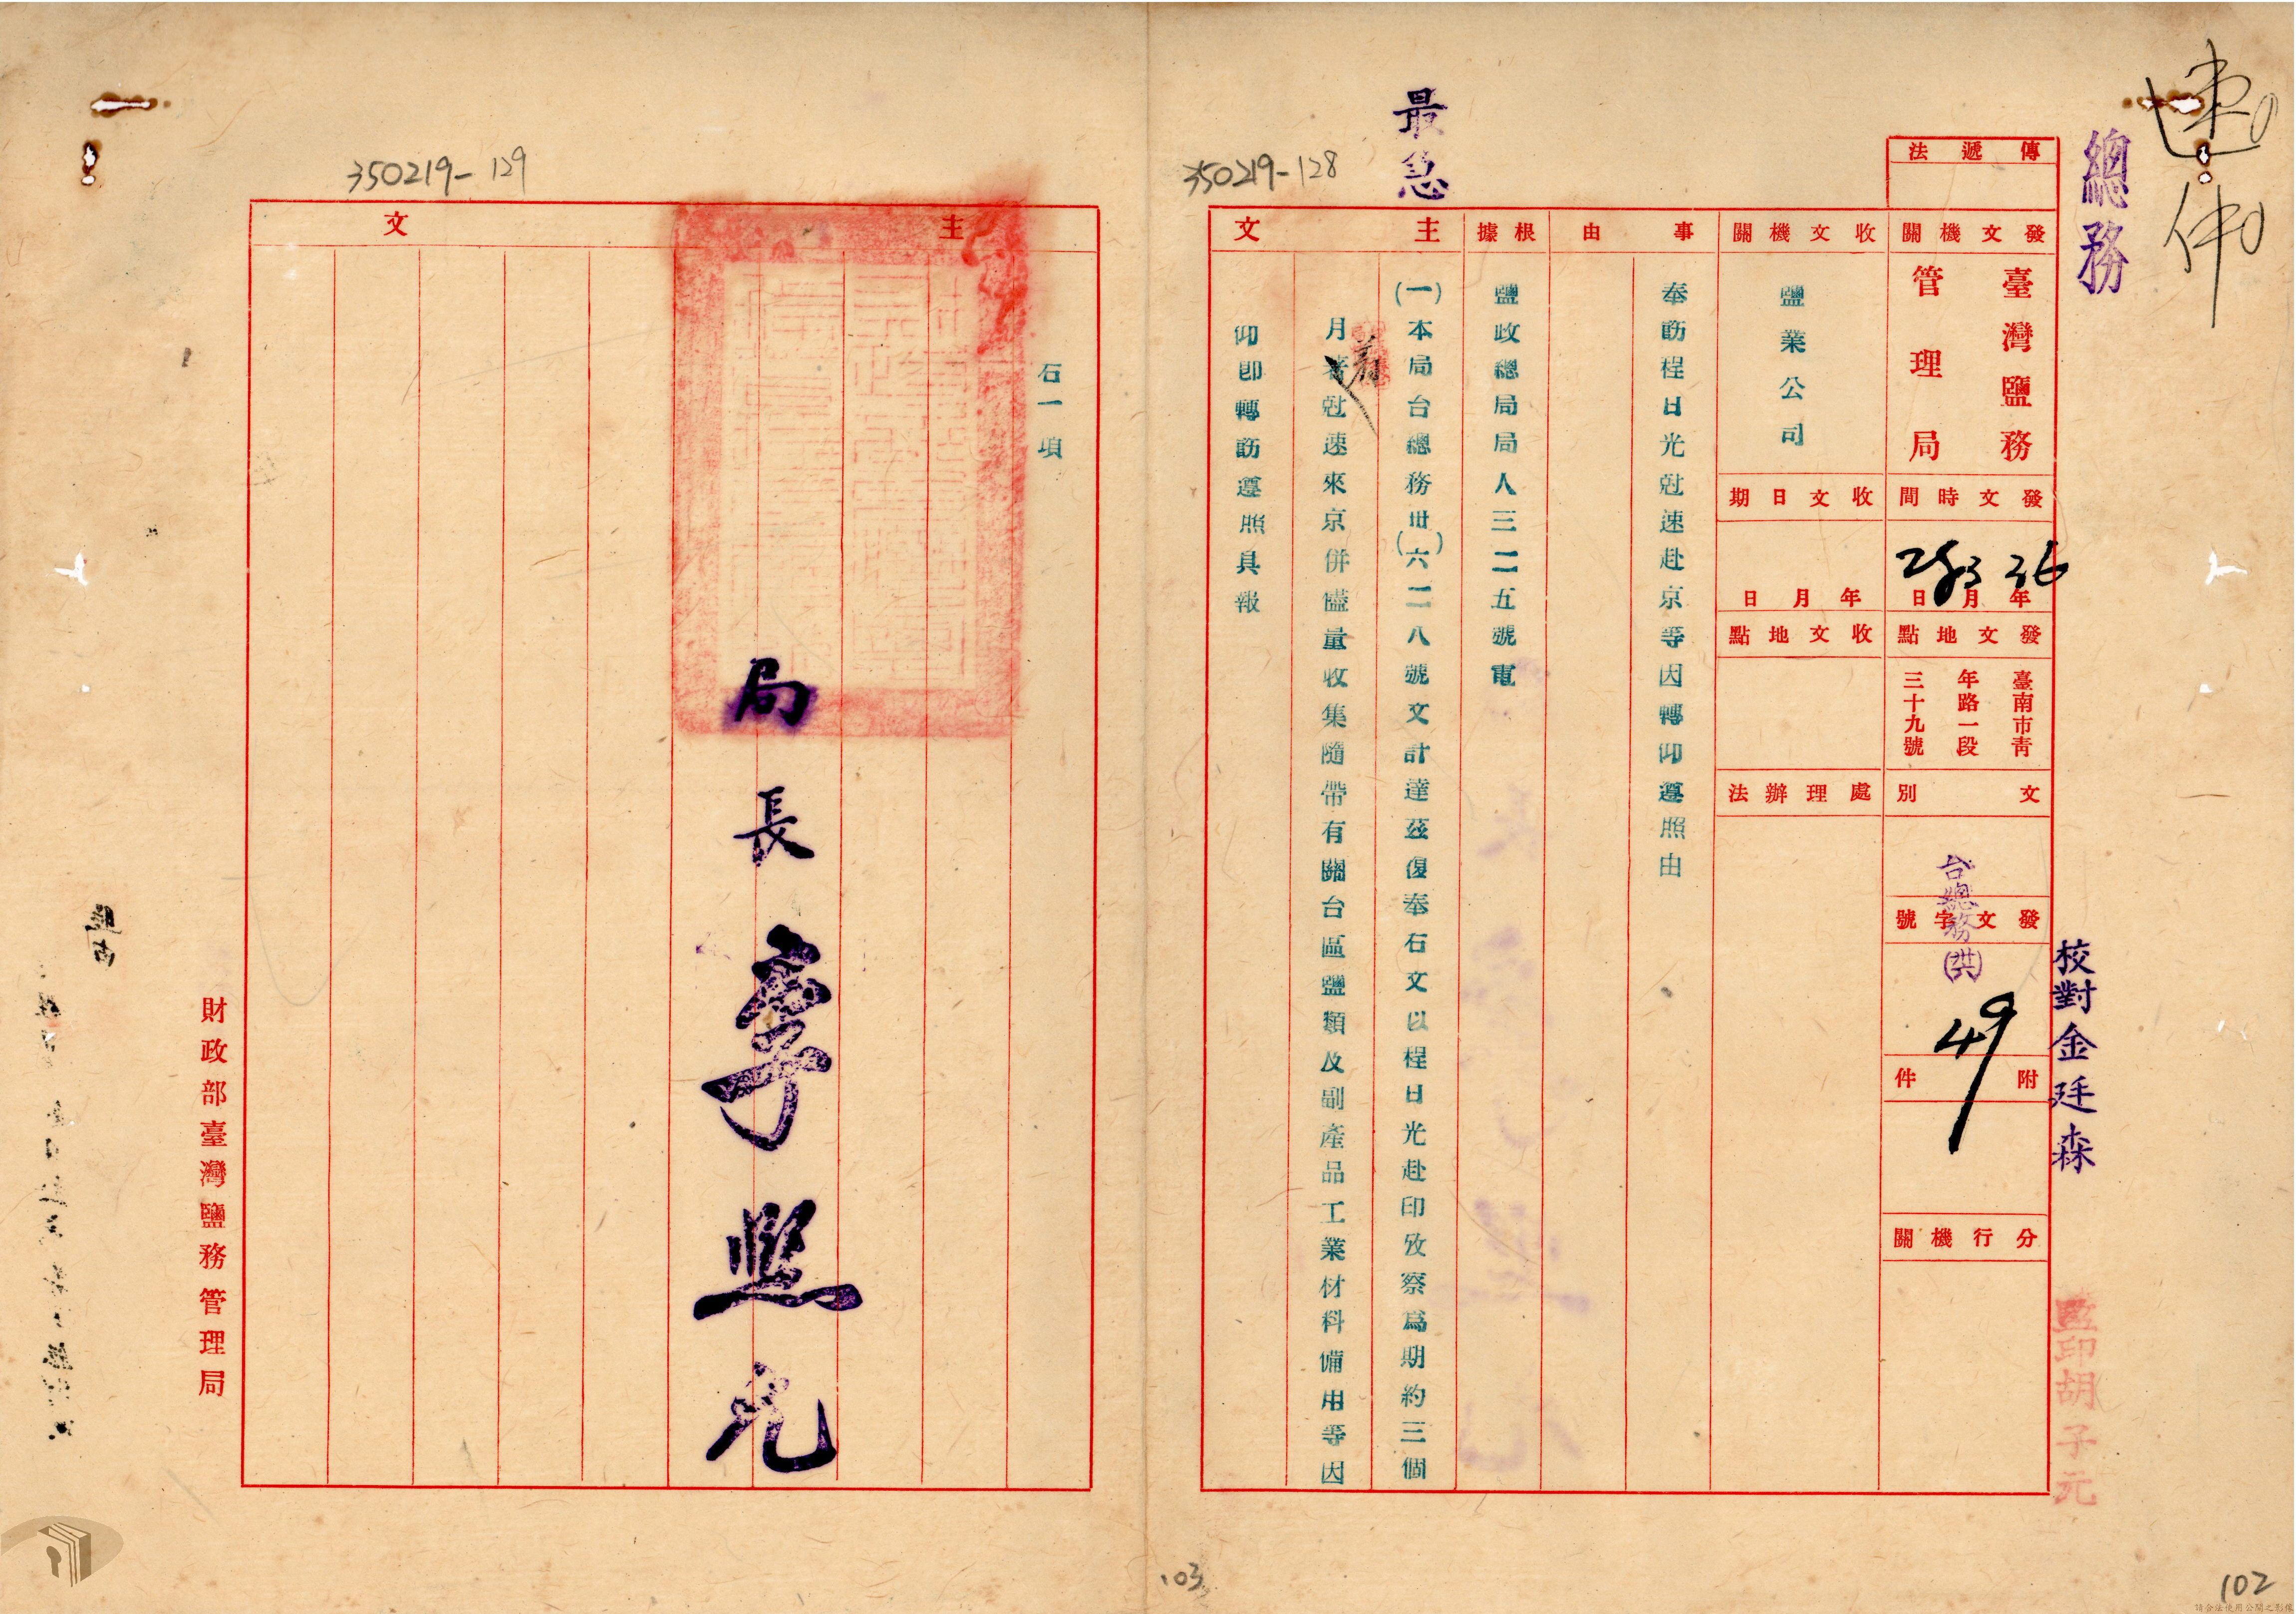 速件
總務
最急
350219-128
傳遞法
發文機關
臺灣鹽務
管理局
發文時間
36年3月25日
發文地點
臺南市青
年路一段
三十九號
文別
發文字號
台總務(洪)
49
附件
分行機關
校對金廷森
監印胡子元
收文機關
鹽業公司
收文日期
年月日
收文地點
處理辦法
事由
奉飭程日光尅速赴京等因轉仰遵照由
根據
鹽政總局局人三二五號電
主文
(一)本局台總務卅(六)二八號文計達茲復奉石文以程日光赴印攷察為期約三個
月着尅速來京併儘量收集隨帶有關台區鹽類及副產品工業材料備用等因
仰即轉飭遵照具報
102
350219-129
主文
石一項
局長李熙元
財政部臺灣鹽務管理局
103
請合法使用公開之影像